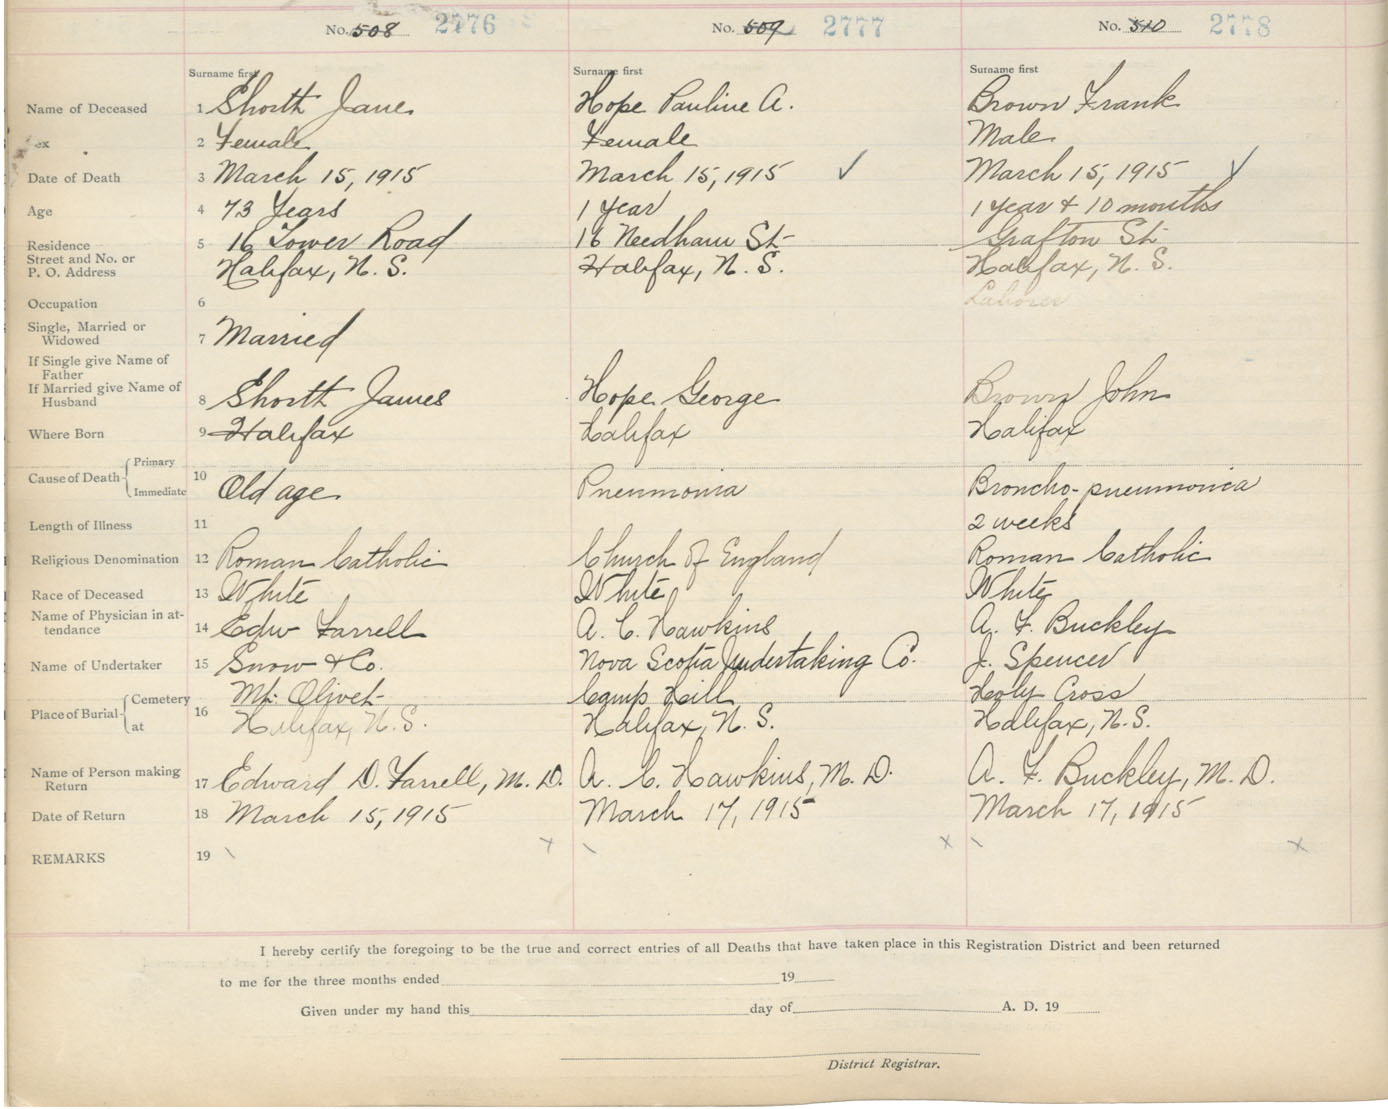 No. 508 2776
No. 509 2777
No. 510 2778
Surname first
Surname first
Surname first
Name of Deceased 1 Shorth Jane Hope Pauline A. Brown Frank
Sex 2 Female Female Male
Date of Death 3 March 15, 1915 March 15, 1915 ✓ March 15, 1915 ✓
Age 4 73 Years 1 year 1 year + 10 months
Residence 5 16 Tower Road 16 Needham St. Grafton St.
Street and No. or
P. O. Address Halifax, N. S. Halifax, N. S. Halifax, N. S.
Occupation 6 Laborer
Single, Married or
Widowed 7 Married
If Single give Name of
Father
If Married give Name of
Husband 8 Shorth James Hope George Brown John
Where Born 9 Halifax Halifax Halifax
Cause of Death { Primary
Immediate 10 Old age Pneumonia Broncho-pneumonia
Length of Illness 11 2 weeks
Religious Denomination 12 Roman Catholic Church of England Roman Catholic
Race of Deceased 13 White White White
Name of Physician in at-
tendance 14 Edw Farrell A. C. Hawkins A. F. Buckley
Name of Undertaker 15 Snow & Co. Nova Scotia Undertaking Co. J. Spencer
Place of Burial { Cemetery Mt. Olivet Camp Hill Holy Cross
at 16 Halifax, N. S. Halifax, N. S. Halifax, N. S.
Name of Person making
Return 17 Edward D. Farrell, M. D. A. C. Hawkins, M. D. A. F. Buckley, M. D.
Date of Return 18 March 15, 1915 March 17, 1915 March 17, 1915
REMARKS 19 \ x \ x \ x
I hereby certify the foregoing to be the true and correct entries of all Deaths that have taken place in this Registration District and been returned
to me for the three months ended 19
Given under my hand this day of A. D. 19
District Registrar.